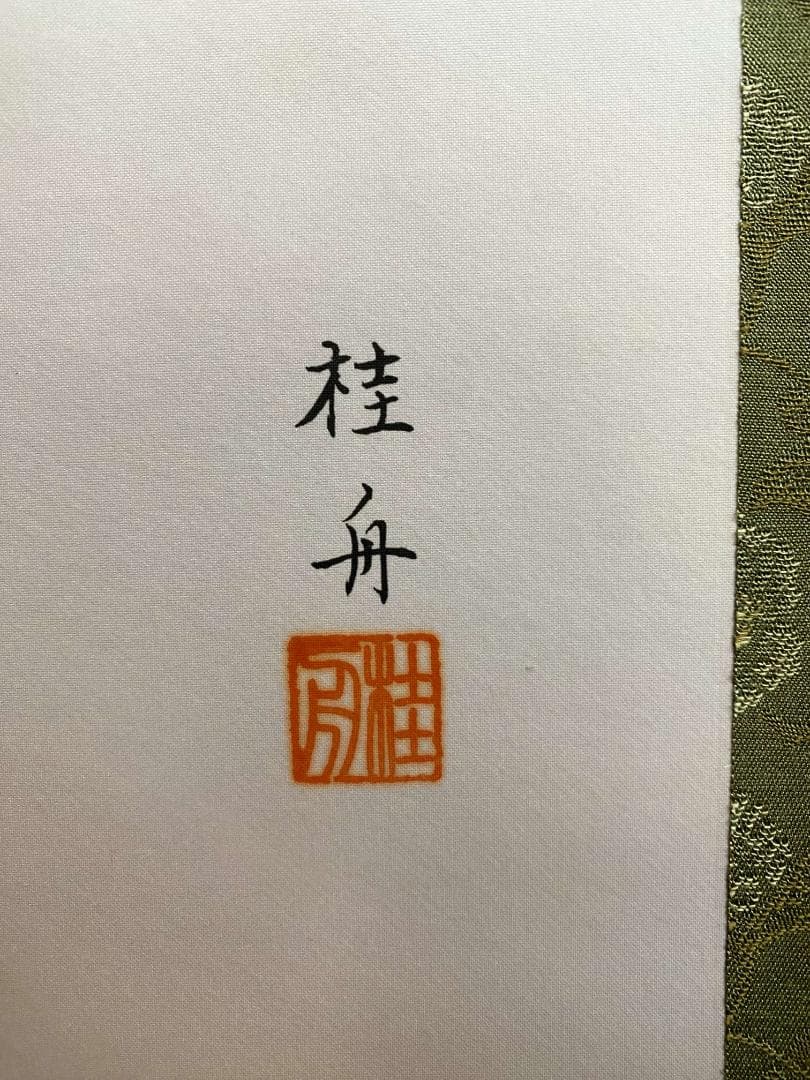 桂
舟
桂舟